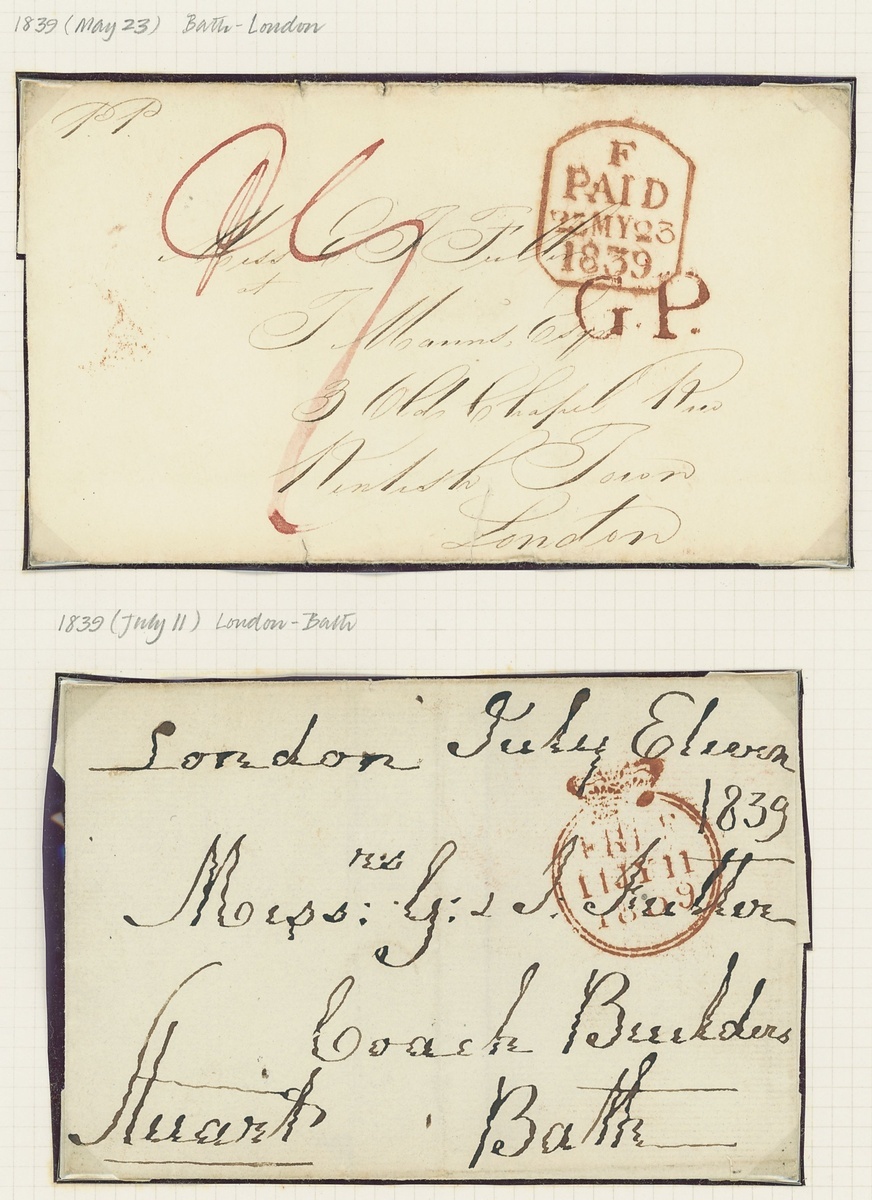 1839 (May 23) Bath-London
P.P.
F
PAID
MY23
1839
Miss
at
G.P.
T Manns, Esqr
3 Old Chapel Row
Kentish Town
London
1839 (July 11) London-Bath
London July Eleven
1839
FREE
11JY11
1839
Messrs: G: & J. Fuller
Coach Builders
Stuart Bath